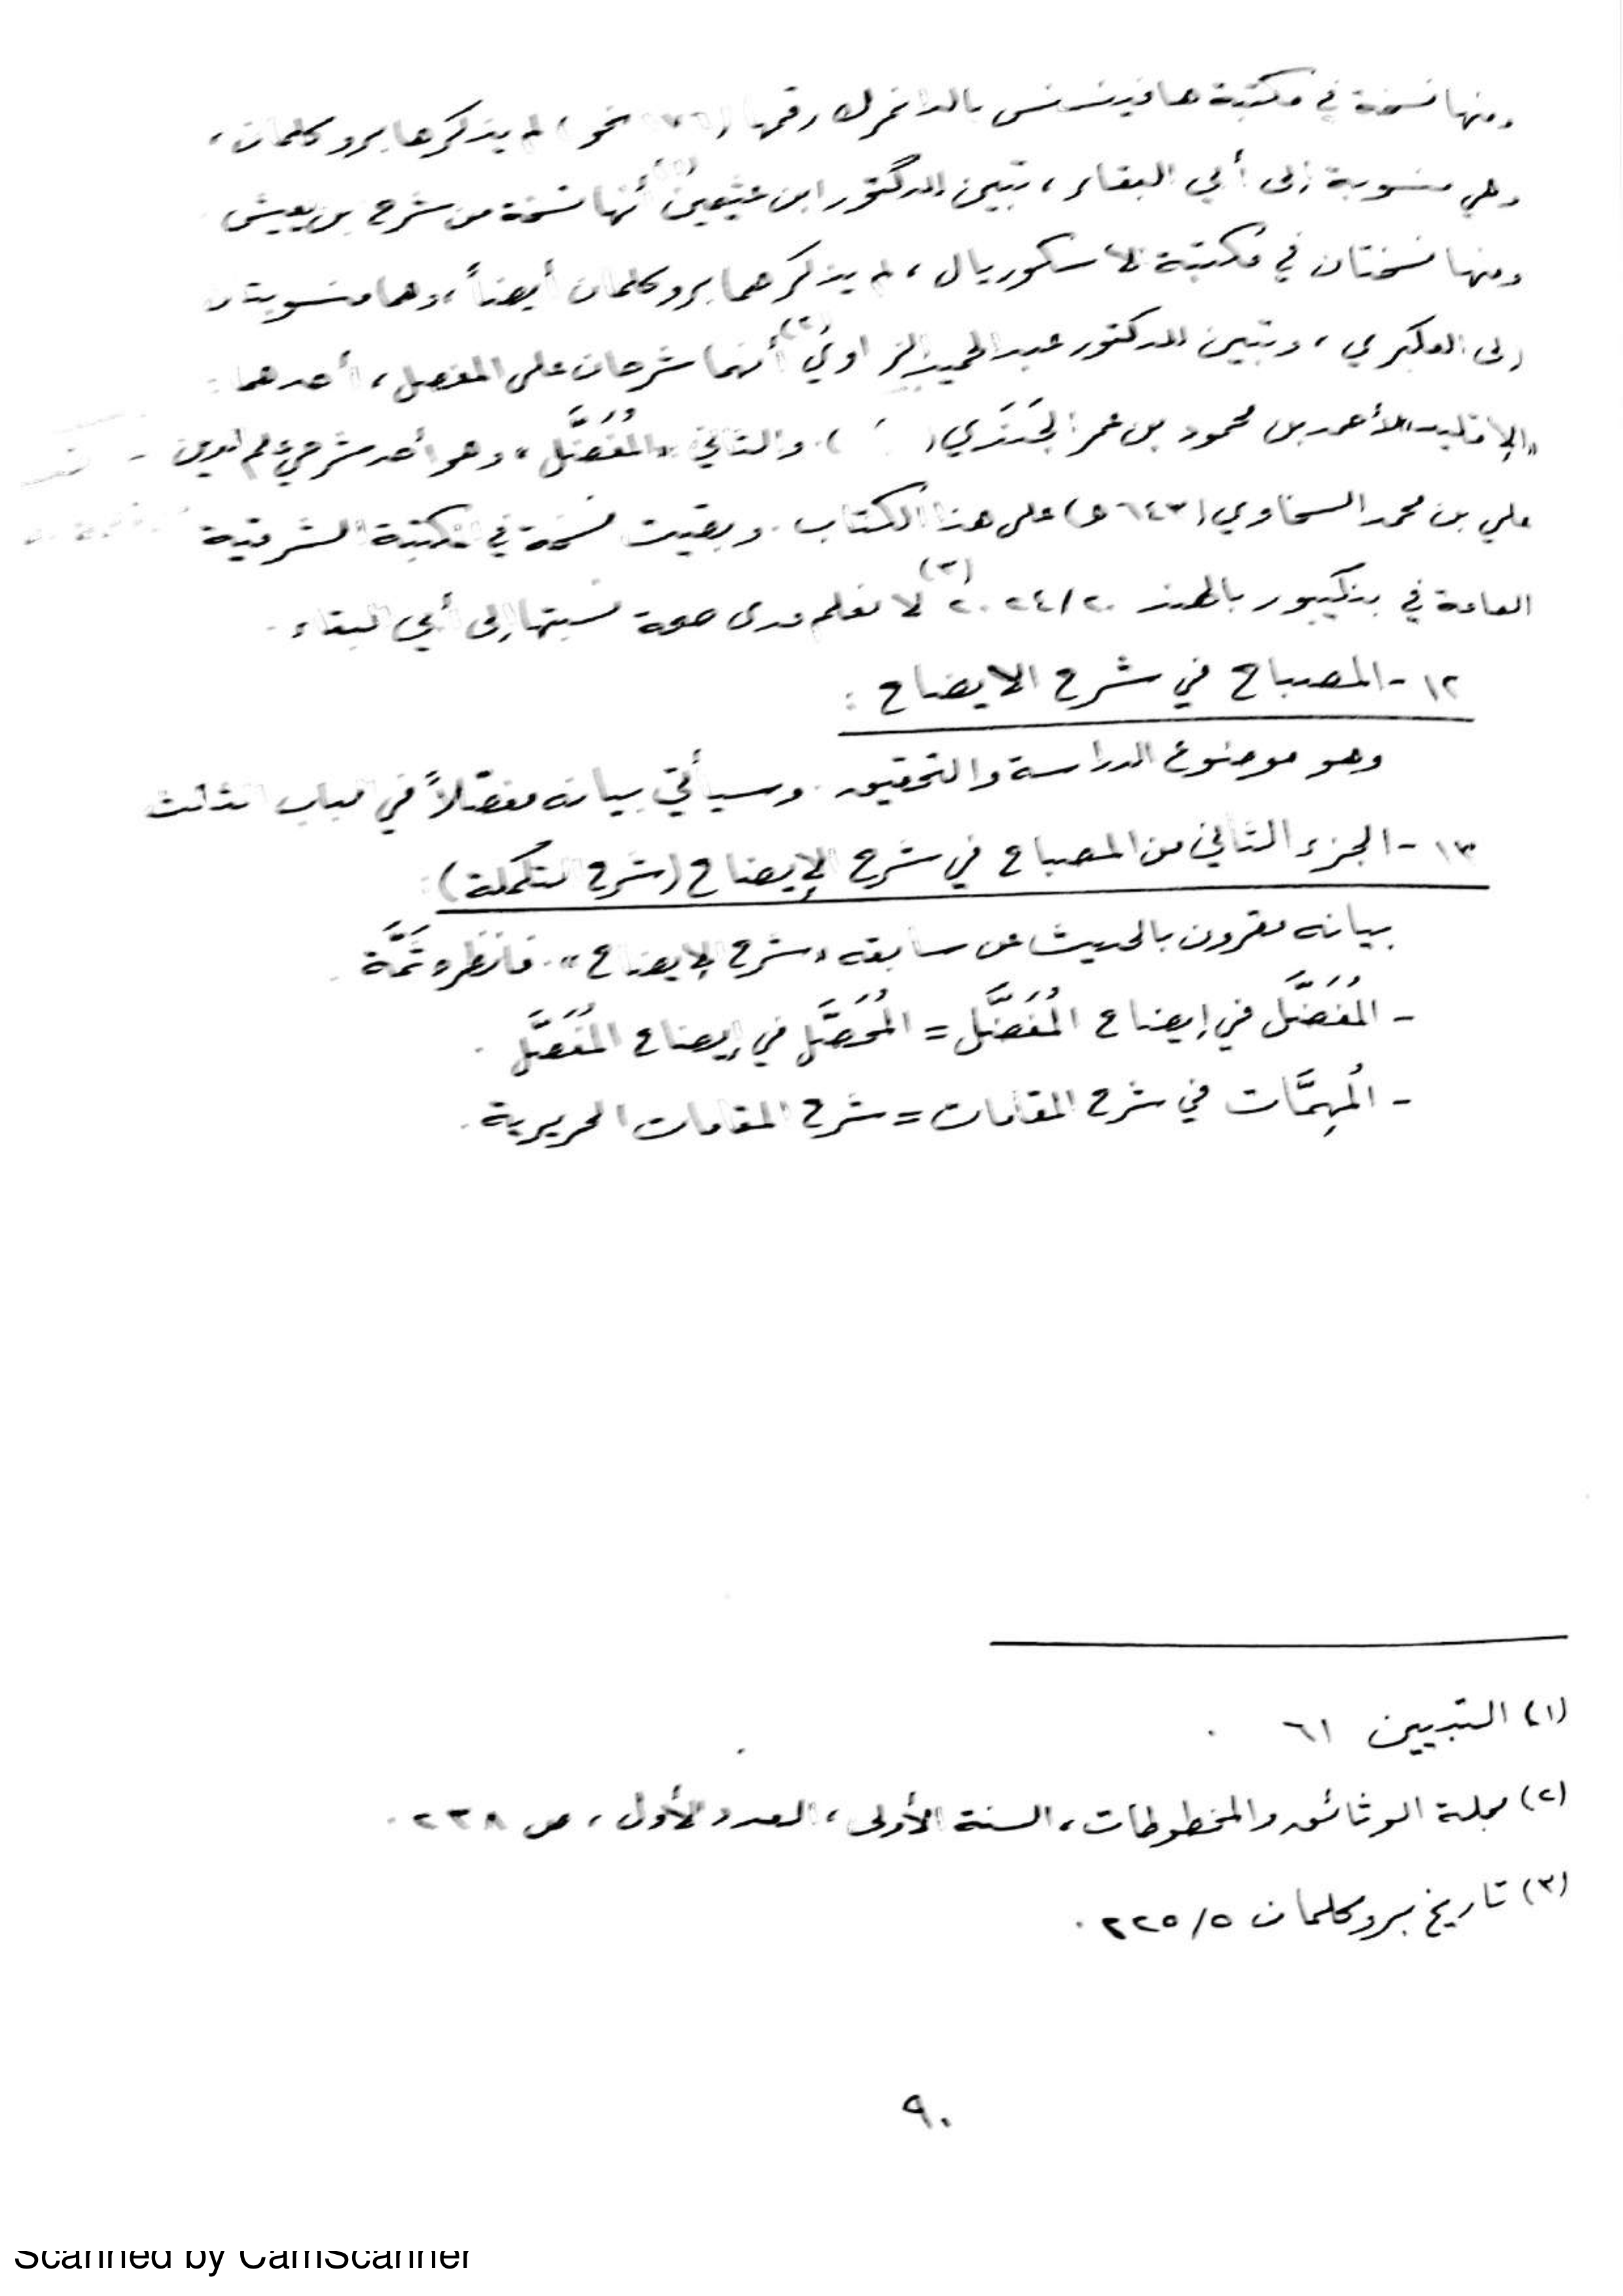 ومنها نسخة في مكتبة هافينسس بالدانمرك رقمها ( نحو) لم يذكرها بروكلمان ،
وهي منسوبة إلى أبي البقاء ، تبين للدكتور ابن عثيمين أنها نسخة من شرح ابن يعيش
ومنها نسختان في مكتبة الاسكوريال ، لم يذكرهما بروكلمان أيضاً ، وهما منسوبتان
إلى العكبري ، وتبين للدكتور عبدالحميد الزاوي (٢) أنهما شرحان على المفصل ، أحدهما :
«الإقليد» لأحمد بن محمود بن عمر الجَنَدي ( ) . والثاني «المُفَضَّل» وهو أحد شرحي علم الدين
علي بن محمد السخاوي (٦٤٣ هـ) على هذا الكتاب . وبقيت نسخة في المكتبة الشرقية
العامة في بنكيبور بالهند ٢٠٢٤/٢٠ (٣) لا نعلم مدى صحة نسبتها إلى أبي البقاء .
١٢ - المصباح في شرح الايضاح :
وهو موضوع الدراسة والتحقيق . وسيأتي بيانه مفصّلاً في الباب الثالث
١٣ - الجزء الثاني من المصباح في شرح الإيضاح (شرح التكملة) :
بيانه مقرون بالحديث عن سابقه «شرح الإيضاح» . فانظره ثَمَّة .
- المُفَضَّل في إيضاح المُفَضَّل = المُحَصَّل في إيضاح المُفَصَّل .
- المُهِمَّات في شرح المقامات = شرح المقامات الحريرية .
(١) التبيين ٦١ .
(٢) مجلة الوثائق والمخطوطات ، السنة الأولى ، العدد الأول ، ص ٢٣٨ .
(٣) تاريخ بروكلمان ٢٢٥/٥ .
٩٠
Scanned by CamScanner